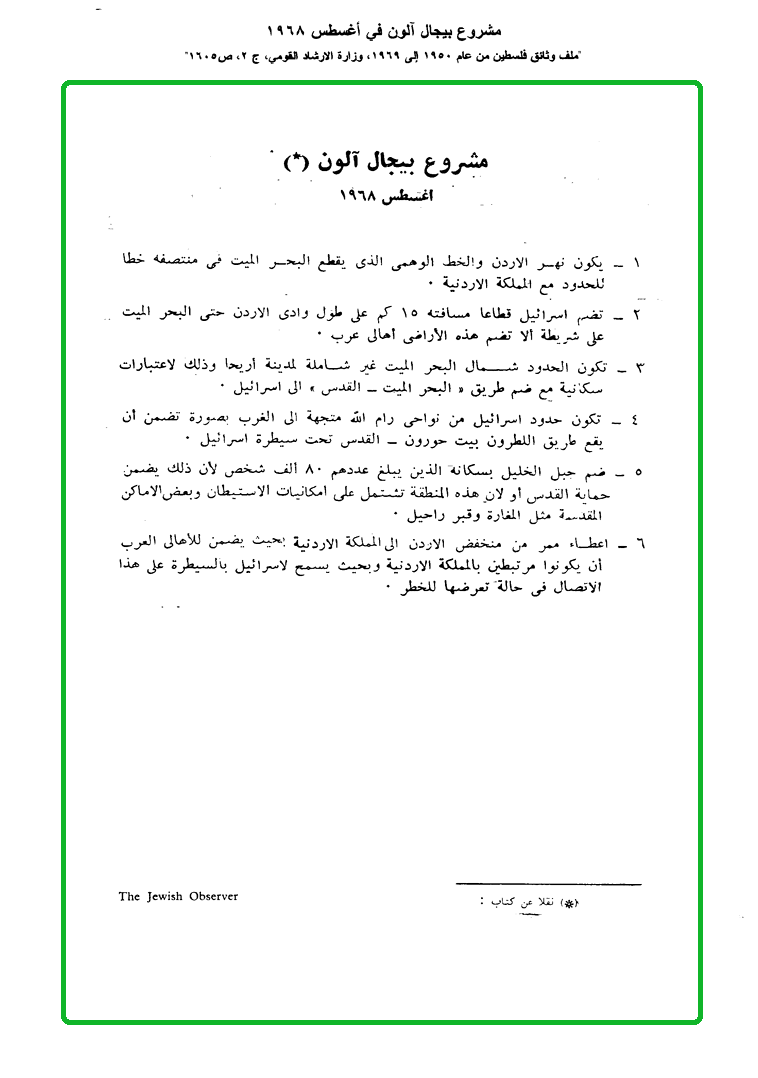 مشروع بيجال آلون في أغسطس ١٩٦٨
"ملف وثائق فلسطين من عام ١٩٥٠ إلى ١٩٦٩، وزارة الارشاد القومي، ج ٢، ص١٦٠٥"
مشروع بيجال آلون (*)
اغسطس ١٩٦٨
١ ــ يكون نهـر الاردن والخط الوهمى الذى يقطع البحـر الميت فى منتصفه خطا
للحدود مع المملكة الاردنية ٠
٢ ــ تضم اسرائيل قطاعا مسافته ١٥ كم على طول وادى الاردن حتى البحر الميت
على شريطة ألا تضم هذه الأراضى أهالى عرب ٠
٣ ــ تكون الحدود شـــمال البحر الميت غير شـاملة لمدينة أريحا وذلك لاعتبارات
سكانية مع ضم طريق « البحر الميت ــ القدس » الى اسرائيل ٠
٤ ــ تكون حدود اسرائيل من نواحى رام الله متجهة الى الغرب بصورة تضمن أن
يقع طريق اللطرون بيت حورون ــ القدس تحت سيطرة اسرائيل ٠
٥ ــ ضم جبل الخليل بسكانه الذين يبلغ عددهم ٨٠ ألف شخص لأن ذلك يضمن
حماية القدس أو لان هذه المنطقة تشتمل على امكانيات الاستيطان وبعض الاماكن
المقدسة مثل المغارة وقبر راحيل ٠
٦ ــ اعطـاء ممر من منخفض الاردن الى المملكة الاردنية بحيث يضمن للأهالى العرب
أن يكونوا مرتبطين بالمملكة الاردنية وبحيث يسمح لاسرائيل بالسيطرة على هذا
الاتصال فى حالة تعرضها للخطر ٠
(*) نقلا عن كتاب : The Jewish Observer